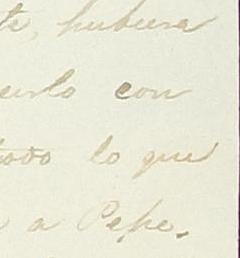 te, hubiera
con
todo lo que
a Pepe.